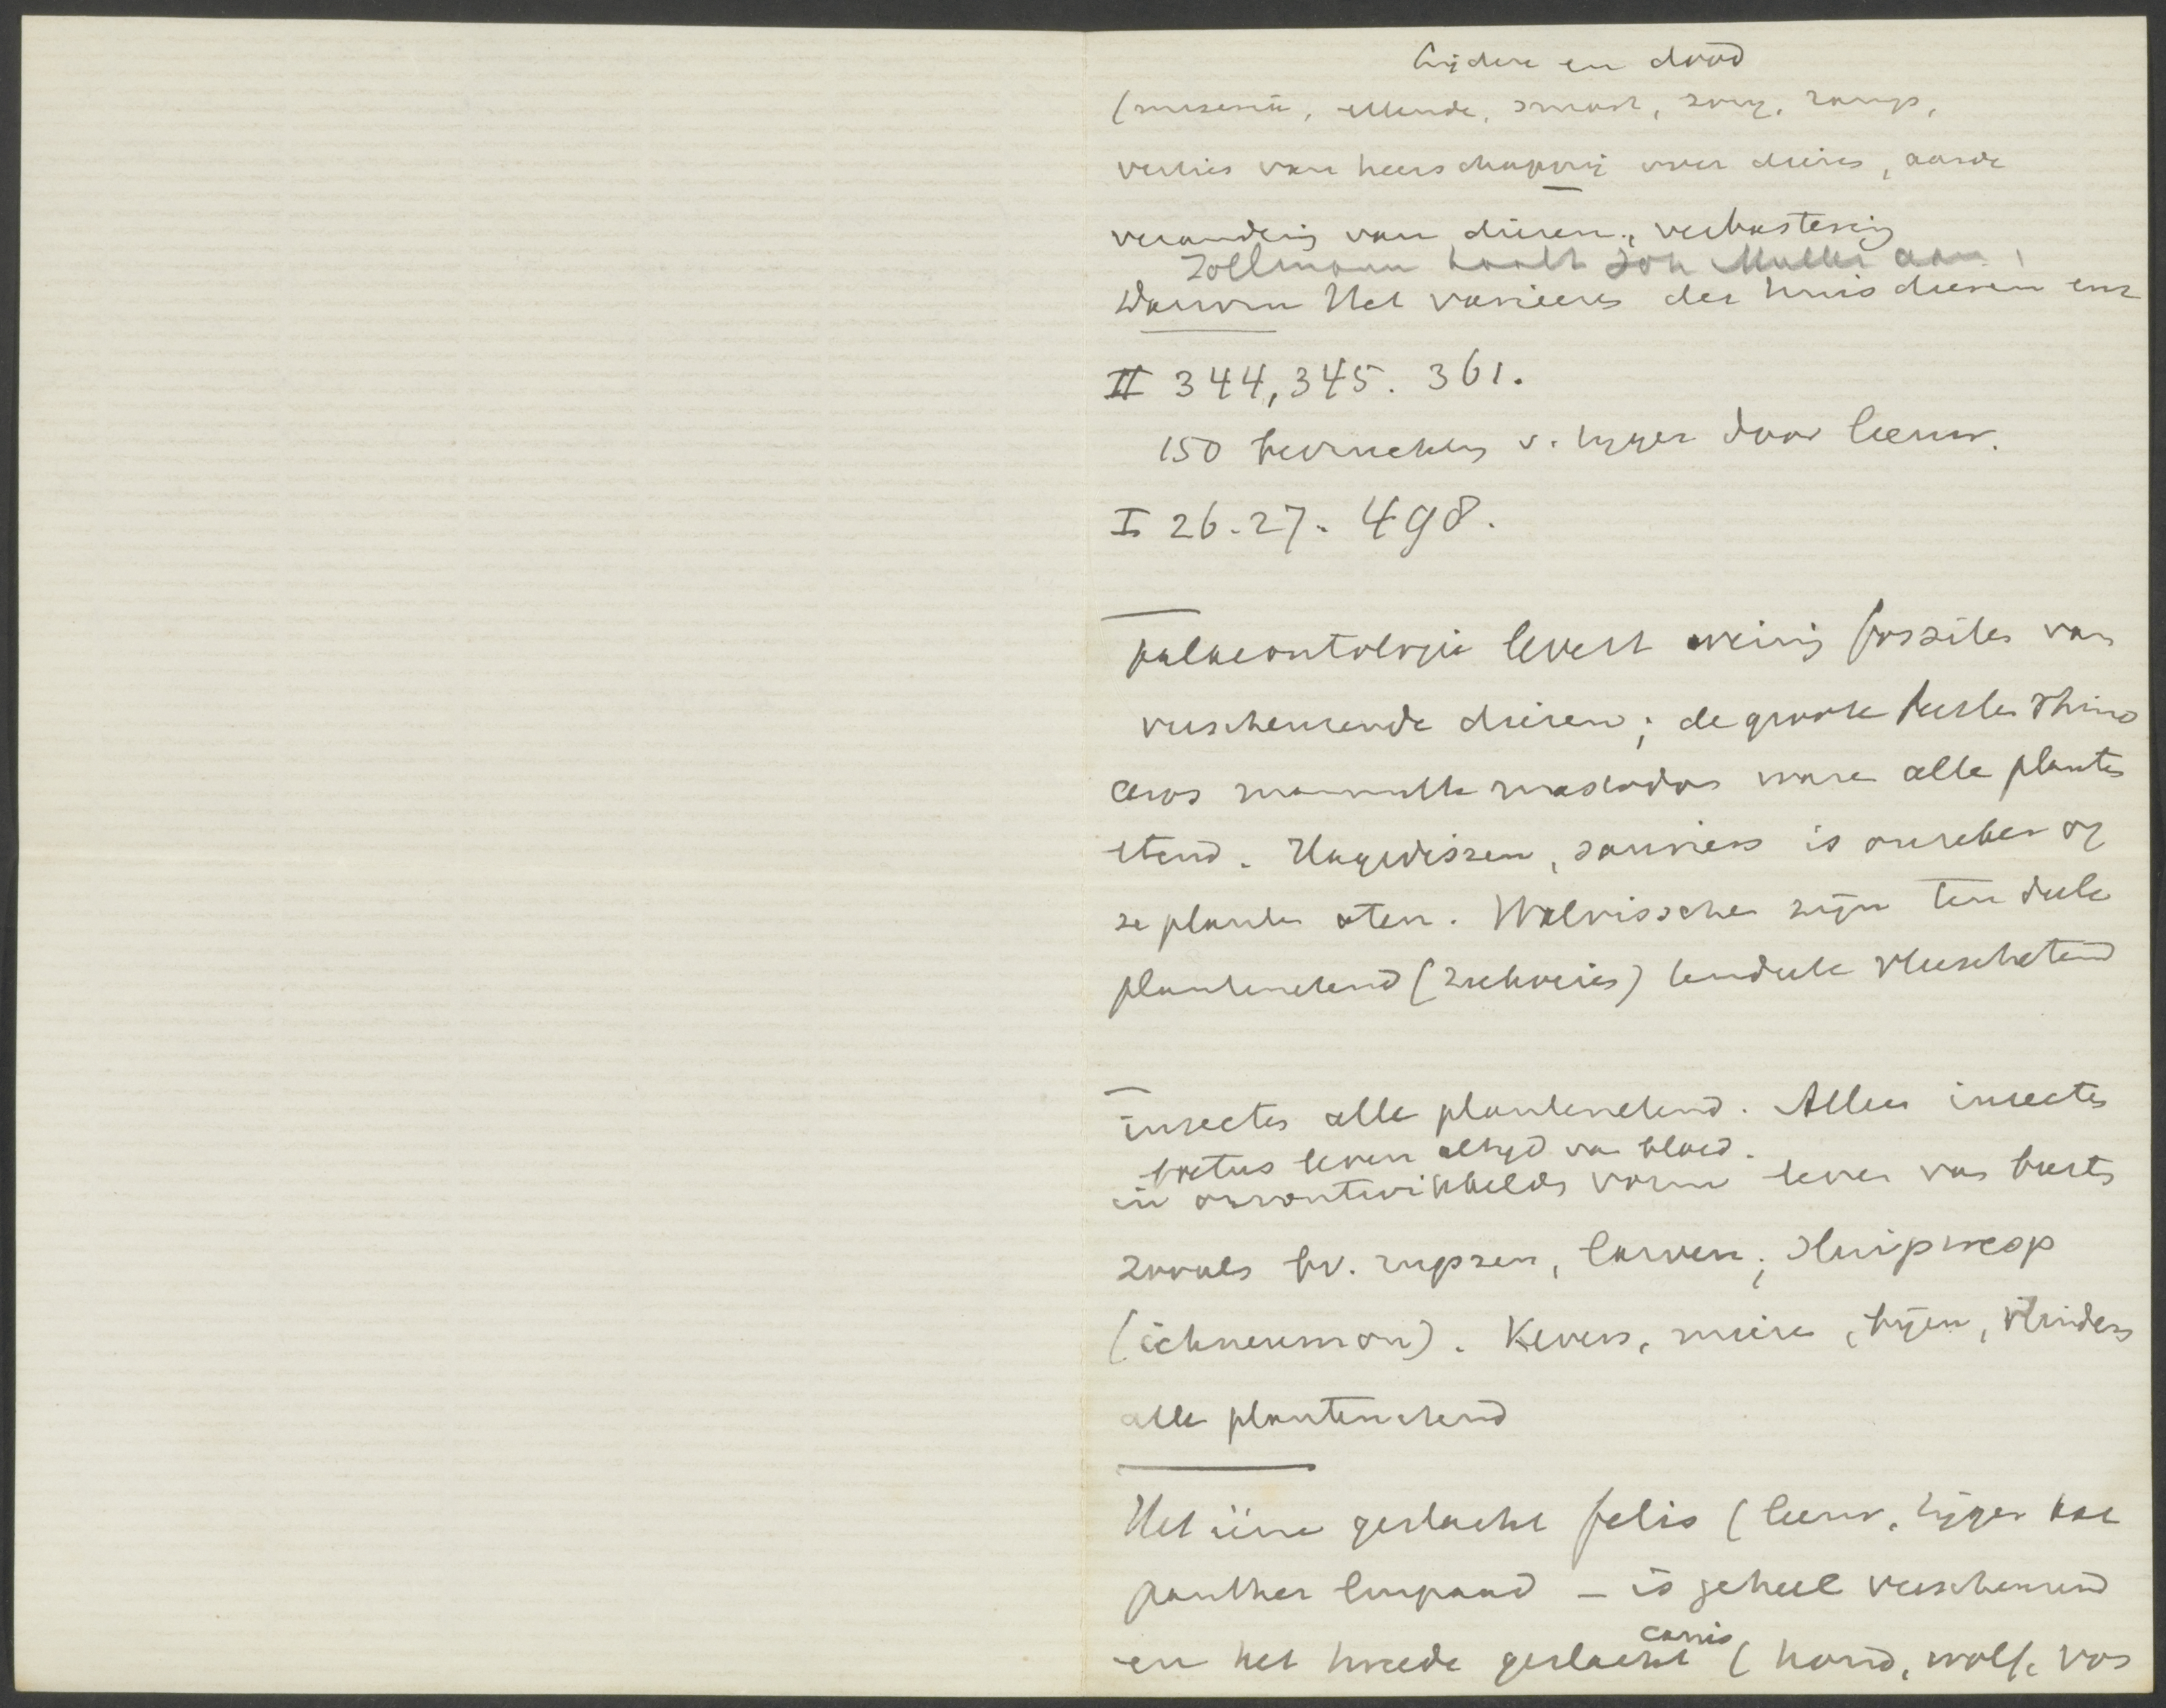 Lijden en dood
(miserie, ellende, smart, zorg, ramps,
verlies van heerschappij over dieren, aarde
verandering van dieren, verbastering
Zollmann haalt Joh Muller aan
Darwin Het varieeren der huisdieren enz
II 344, 345. 361.
150 bevruchting v. tyger door leeuw.
I 26-27. 498.
palaeontologie levert weinig fossilen van
verscheurende dieren; de groote beesten rhino
ceros mammoth mastodon waren alle planten
etend. Hagedissen, sauriers is onzeker of
ze planten aten. Walvisschen zijn ten deele
plantenetend (zeekoeien) tendeele vleeschetend
insecten alle plantenetend. Alleen insecten
nooit leven altyd van bloed.
in onontwikkelden vorm leven van beesten
zooals bv. rupsen, larven; sluipwesp
(ichneumon). Kevers, mieren, bijen, vlinders
alle plantenetend
Het eene geslacht felis (leeuw, tijger kat
panther luipaard - is geheel verscheurend
en het tweede geslacht canis (hond, wolf, vos